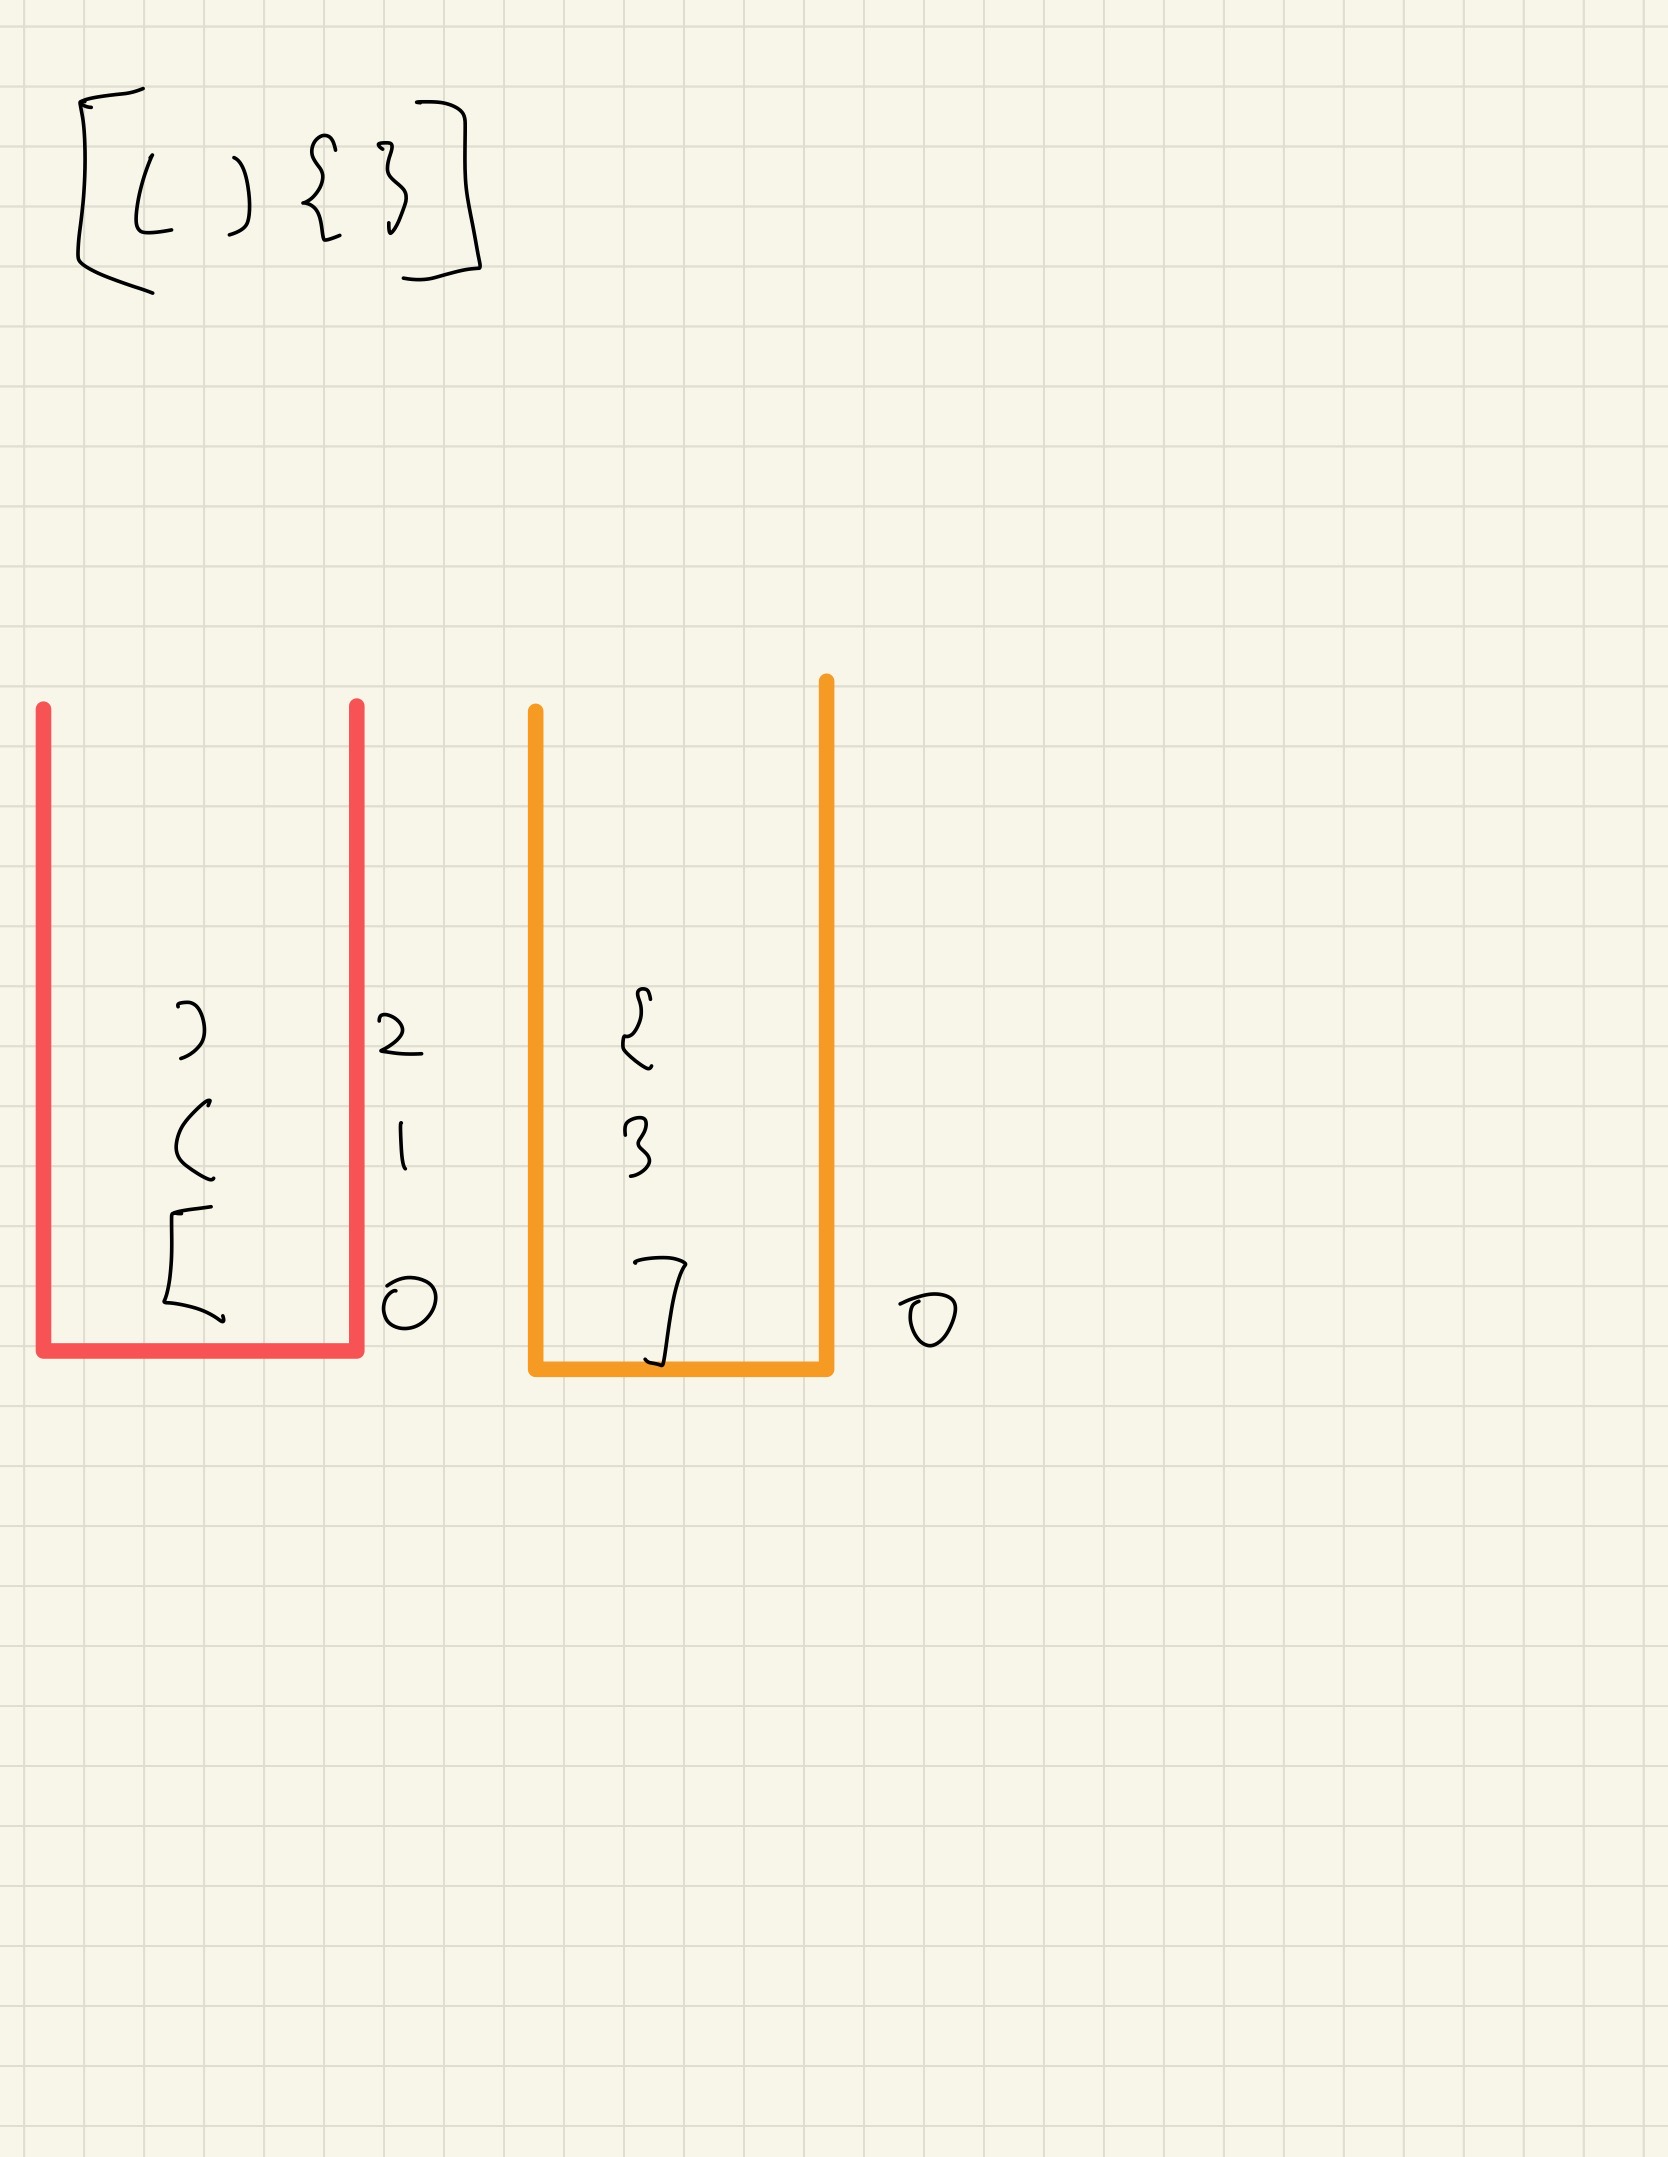 [ ( ) { } ]
) 2 {
( 1 }
[ 0 ] 0